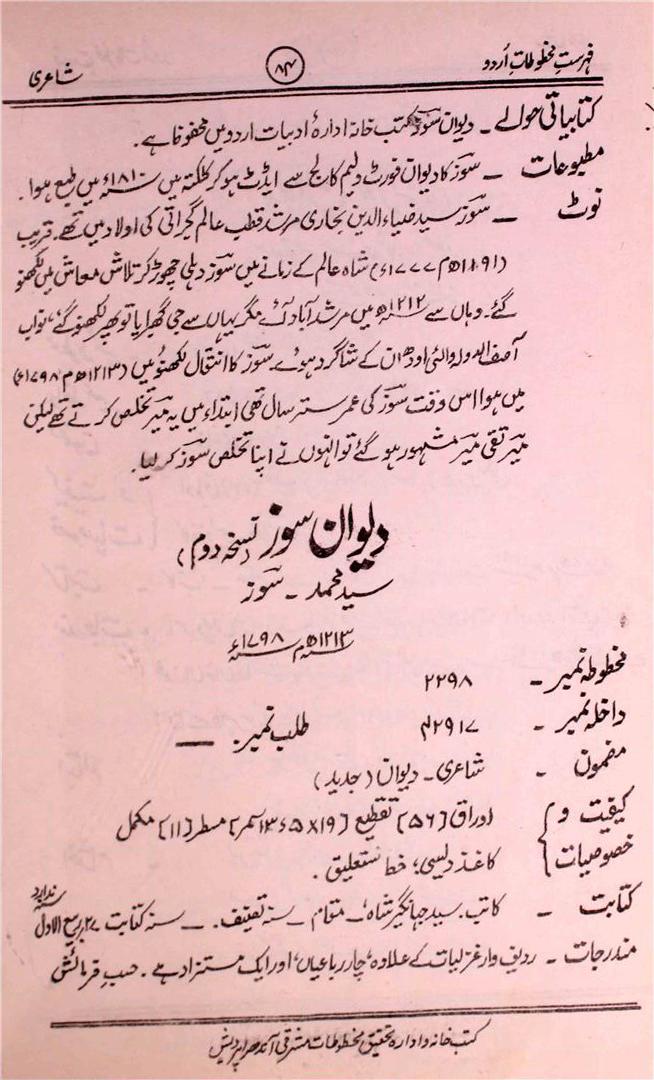 فہرست مخطوطات اُردو
۸۴
شاعری
کتابیاتی حوالے ۔ دیوان سوز کتب خانہ ادارۂ ادبیات اردو میں محفوظ ہے۔
مطبوعات ۔ سوز کا دیوان فورٹ ولیم کالج سے ایڈٹ ہو کر کلکتہ میں سنہ ۱۸۱۰ء میں طبع ہوا۔
نوٹ ۔ سوز سید ضیاء الدین بخاری مرشد قطب عالم گجراتی کی اولاد میں تھے۔ قریب
(۱۱۹۱ھ م ۱۷۷۷ء) شاہ عالم کے زمانے میں سوز دہلی چھوڑ کر تلاش معاش میں لکھنو
گئے۔ وہاں سے سنہ ۱۲۱۲ھ میں مرشد آباد آئے مگر یہاں سے جی گھبرایا تو پھر لکھنو گئے، نواب
آصف الدولہ والئی اودھ ان کے شاگرد ہوئے۔ سوز کا انتقال لکھنؤ میں (۱۲۱۳ھ م ۱۷۹۸ء)
میں ہوا اس وقت سوز کی عمر ستر سال تھی ابتداء میں یہ میر تخلص کرتے تھے لیکن
میر تقی میر مشہور ہو گئے تو انہوں نے اپنا تخلص سوز کر لیا۔
دیوان سوز (نسخہ دوم)
سید محمد ۔ سوز
سنہ ۱۲۱۳ھ م سنہ ۱۷۹۸ء
مخطوطہ نمبر ۔ ۲۲۹۸
داخلہ نمبر ۔ ۲۹۱۷م طلب نمبر: ——
مضمون ۔ شاعری ۔ دیوان (جدید)
کیفیت و خصوصیات { اوراق [۵۶] تقطیع [۱۹×۱۳ء۵ سمر] مسطر [۱۱] مکمل
کاغذ دیسی، خط نستعلیق۔
کتابت ۔ کاتب۔ سید جہانگیر شاہ، مقام ۔ سنہ تصنیف۔ ۔ سنہ کتابت ۲۷ ربیع الاول سنہ ندارد
مندرجات ۔ ردیف وار غزلیات کے علاوہ، چار رباعیاں، اور ایک مستزاد ہے۔ حسب فرمائش
کتب خانہ و ادارہ تحقیق مخطوطات مشرقی آندھرا پردیش